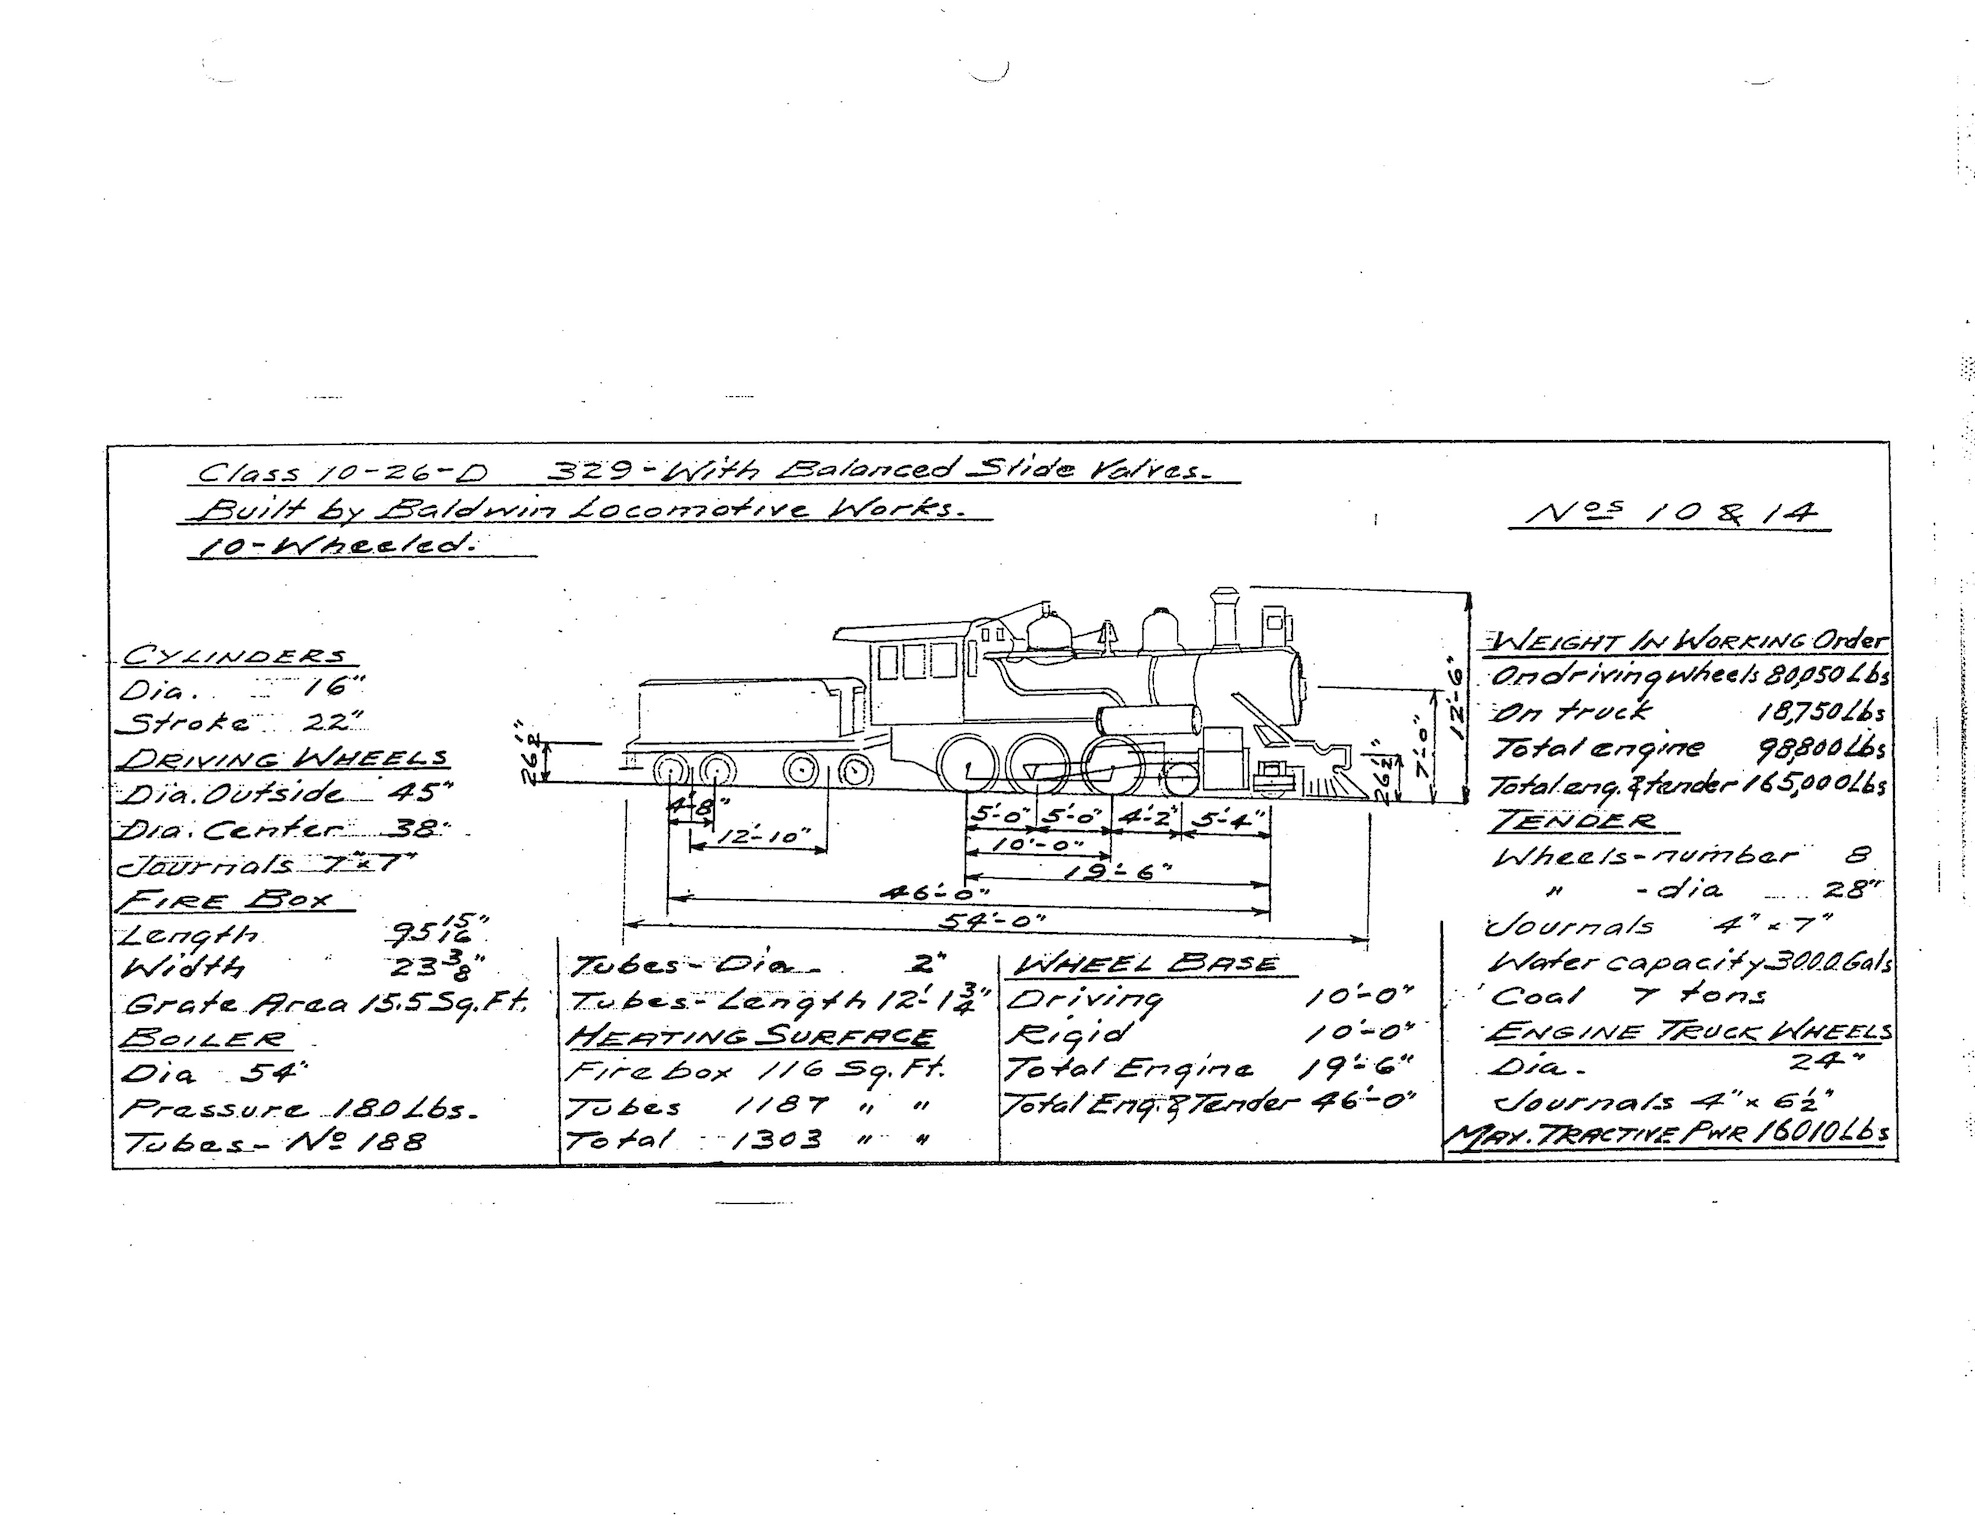 Class 10-26-D 329-With Balanced Slide Valves.
Built by Baldwin Locomotive Works.
10-Wheeled.
Nos 10 & 14
CYLINDERS
Dia. 16"
Stroke 22"
DRIVING WHEELS
Dia. Outside 45"
Dia. Center 38"
Journals 7"x7"
FIRE BOX
Length 95 15/16"
Width 23 3/8"
Grate Area 15.5 Sq. Ft.
BOILER
Dia 54"
Pressure 180 Lbs.
Tubes - No 188
26 1/2"
4'-8"
12'-10"
5'-0" 5'-0" 4'-2" 5'-4"
10'-0"
19'-6"
46'-0"
54'-0"
26 1/2"
7'-0"
12'-6"
Tubes - Dia. 2"
Tubes - Length 12'-1 3/4"
HEATING SURFACE
Firebox 116 Sq. Ft.
Tubes 1187 " "
Total 1303 " "
WHEEL BASE
Driving 10'-0"
Rigid 10'-0"
Total Engine 19'-6"
Total Eng. & Tender 46'-0"
WEIGHT IN WORKING Order
On driving wheels 80,050 Lbs
On truck 18,750 Lbs
Total engine 98,800 Lbs
Total eng. & tender 165,000 Lbs
TENDER
Wheels - number 8
" - dia 28"
Journals 4" x 7"
Water capacity 3000 Gals
Coal 7 tons
ENGINE TRUCK WHEELS
Dia. 24"
Journals 4" x 6 1/2"
MAX. TRACTIVE PWR 16010 Lbs